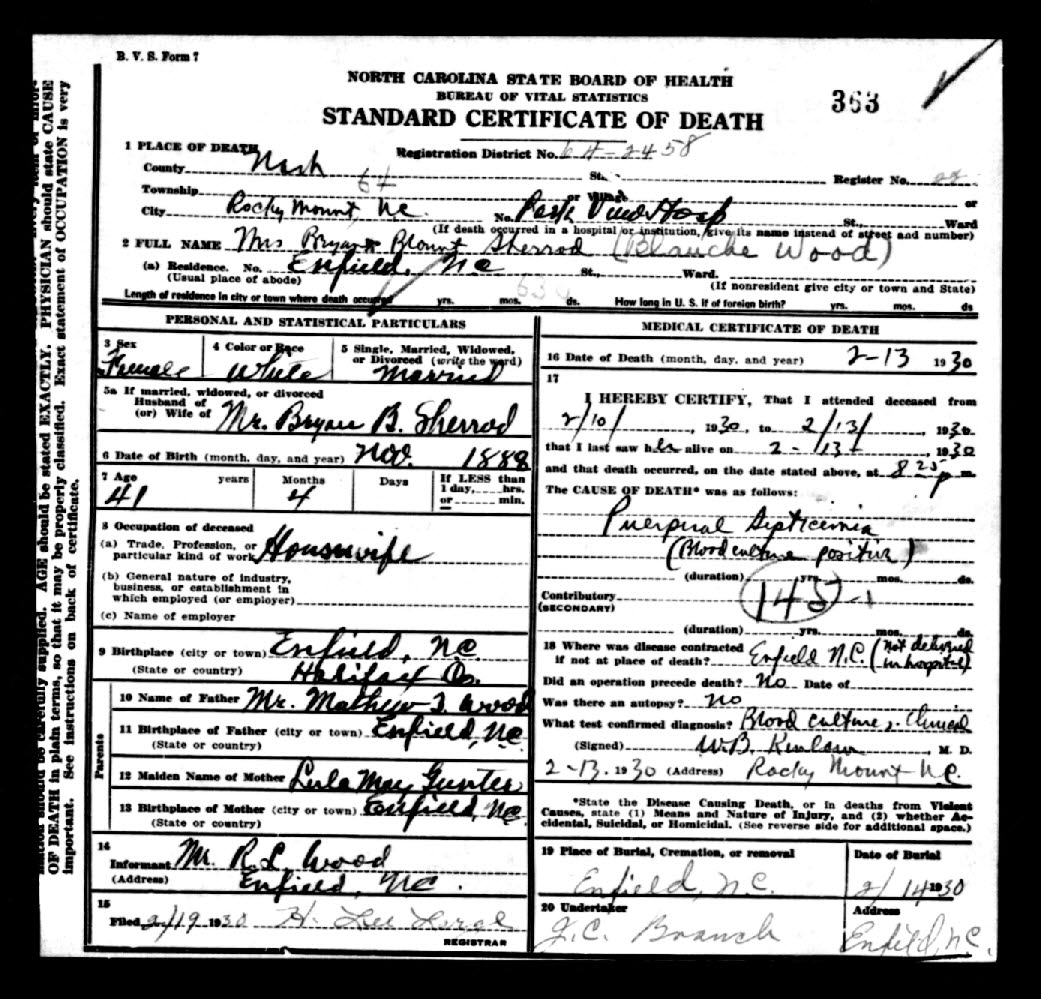 B. V. S. Form 7
NORTH CAROLINA STATE BOARD OF HEALTH
BUREAU OF VITAL STATISTICS
STANDARD CERTIFICATE OF DEATH
363
1 PLACE OF DEATH
Registration District No. 64-2458
County Nash St. Register No.
Township 64 or Village or
City Rocky Mount, NC. No. Park View Hosp St., Ward
(If death occurred in a hospital or institution, give its name instead of street and number)
2 FULL NAME Mrs Bryan Blount Sherrod (Blanche Wood)
(a) Residence. No. Enfield, NC St., Ward.
(Usual place of abode) (If nonresident give city or town and State)
Length of residence in city or town where death occurred yrs. mos. ds. How long in U. S. if of foreign birth? yrs. mos. ds
PERSONAL AND STATISTICAL PARTICULARS
3 Sex 4 Color or Race 5 Single, Married, Widowed, or Divorced (write the word)
Female White Married
5a If married, widowed, or divorced
Husband of
(or) Wife of Mr. Bryan B. Sherrod
6 Date of Birth (month, day, and year) Nov. 1888
7 Age years Months Days If LESS than
1 day, hrs.
or min.
41 4
8 Occupation of deceased
(a) Trade, Profession, or
particular kind of work Housewife
(b) General nature of industry,
business, or establishment in
which employed (or employer)
(c) Name of employer
9 Birthplace (city or town) Enfield, NC.
(State or country) Halifax Co.
Parents
10 Name of Father Mr. Mathew T. Wood
11 Birthplace of Father (city or town) Enfield, NC
(State or country)
12 Maiden Name of Mother Lula May Gunter
13 Birthplace of Mother (city or town) Enfield, NC.
(State or country)
14
Informant Mr. R. L. Wood
(Address) Enfield, NC.
15
Filed 2/19 1930 H. Lee
REGISTRAR
MEDICAL CERTIFICATE OF DEATH
16 Date of Death (month, day, and year) 2-13 1930
17
I HEREBY CERTIFY, That I attended deceased from
2/10/, 1930, to 2/13/, 1930
that I last saw her alive on 2-13, 1930
and that death occurred, on the date stated above, at 8 25 p m.
The CAUSE OF DEATH* was as follows:
Puerpural Septicemia
(Blood culture positive)
(duration) yrs. mos. ds.
Contributory 145-1
(SECONDARY)
(duration) yrs. mos. ds.
18 Where was disease contracted
if not at place of death? Enfield N.C. (Not delivered in hospital)
Did an operation precede death? No Date of
Was there an autopsy? No
What test confirmed diagnosis? Blood culture, Clinical
(Signed) W.B. Kinlaw, M. D.
2-13, 1930 (Address) Rocky Mount NC.
*State the Disease Causing Death, or in deaths from Violent
Causes, state (1) Means and Nature of Injury, and (2) whether Ac-
cidental, Suicidal, or Homicidal. (See reverse side for additional space.)
19 Place of Burial, Cremation, or removal Date of Burial
Enfield, N.C. 2/14 1930
20 Undertaker Address
J. C. Branch Enfield, NC.
should be carefully supplied. AGE should be stated EXACTLY. PHYSICIAN should state CAUSE
OF DEATH in plain terms, so that it may be properly classified. Exact statement of OCCUPATION is very
important. See instructions on back of certificate.